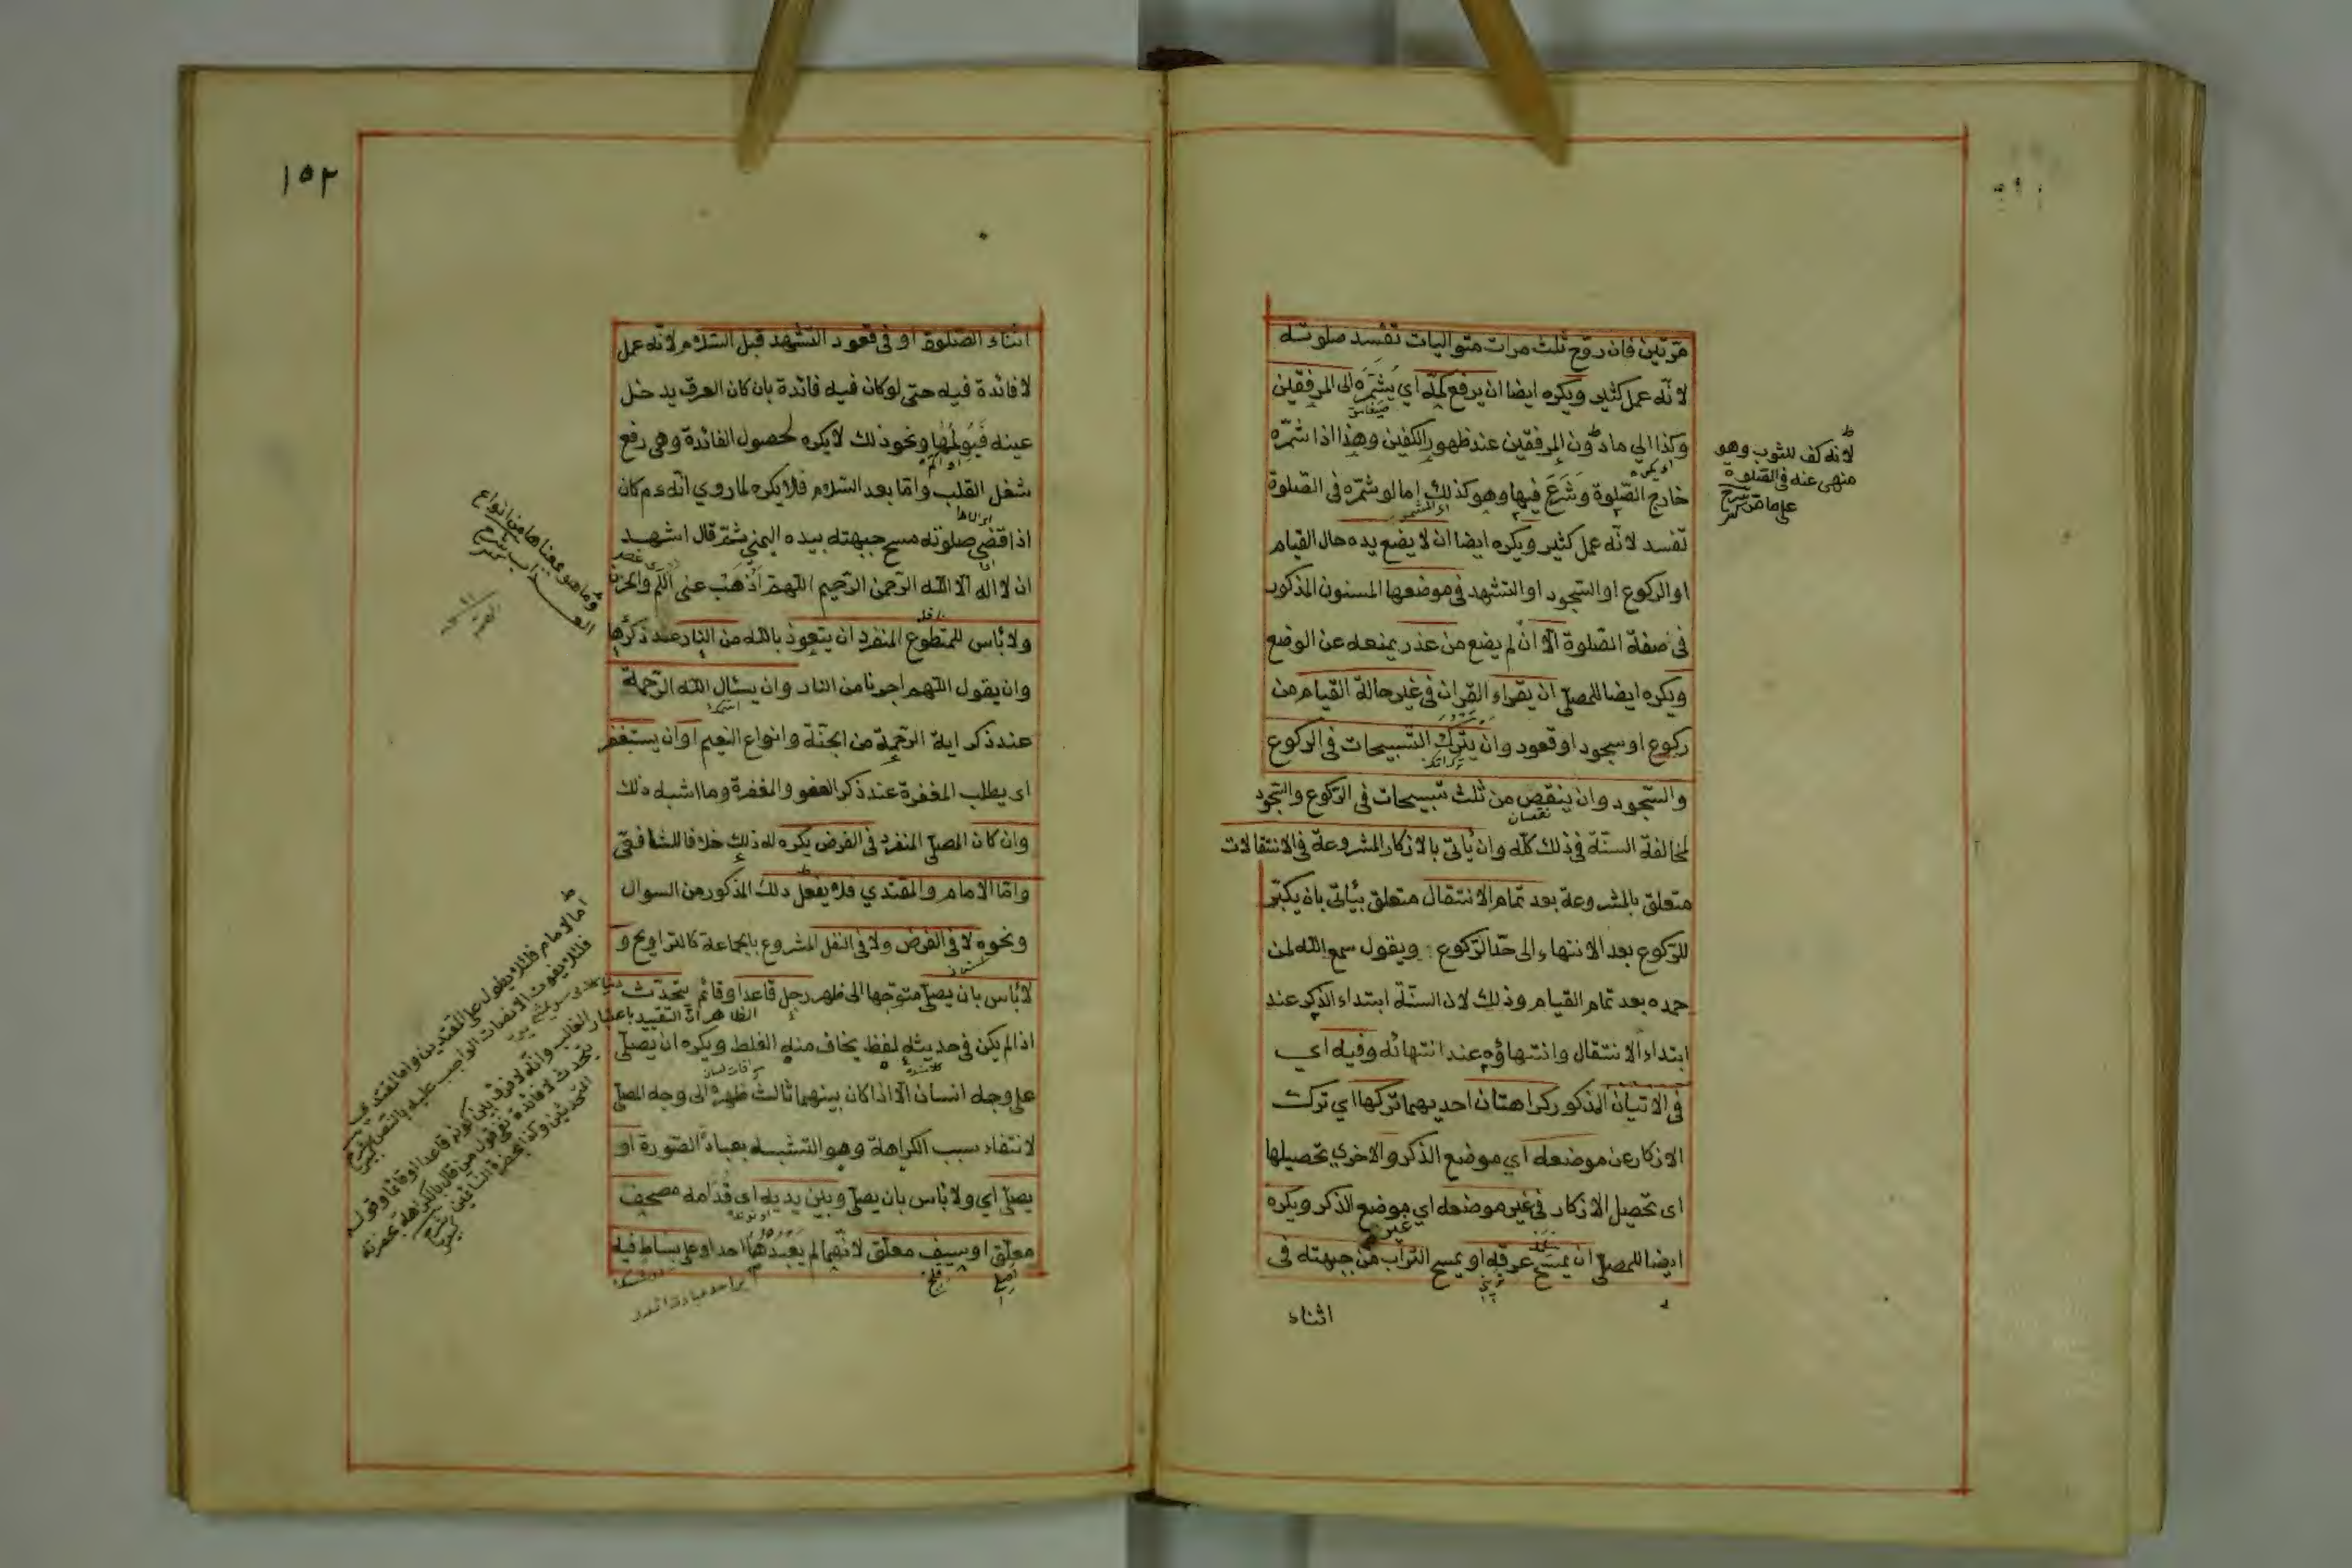 مرتين فان روح ثلث مرات متواليات تفسد صلوته
لانه عمل كثير ويكره ايضا ان يرفع كمه اي يشمره الى المرفقين
وكذا الي مادون المرفقين عند ظهور الكفين وهذا اذا شمره
خارج الصلوة وشرع فيها وهو كذلك اما لو شمره فى الصلوة
تفسد لانه عمل كثير ويكره ايضا ان لا يضع يده حال القيام
او الركوع او السجود او التشهد فى موضعها المسنون المذكور
فى صفة الصلوة الا ان لم يضع من عذر يمنعه عن الوضع
ويكره ايضا للمصلى ان يقراء القران فى غير حالة القيام من
ركوع او سجود او قعود وان يترك التسبيحات فى الركوع
والسجود وان ينقص من ثلث تسبيحات فى الركوع والسجود
لمخالفة السنة فى ذلك كله وان يأتى بالاذكار المشروعة فى الانتقالات
متعلق بالمشروعة بعد تمام الانتقال متعلق بيأتى بان يكبر
للركوع بعد الانتهاء الى حد الركوع ويقول سمع الله لمن
حمده بعد تمام القيام وذلك لان السنة ابتداء الذكر عند
ابتداء الانتقال وانتهاؤه عند انتهائه وفيه اي
فى الاتيان المذكور كراهتان احديهما تركها اي ترك
الاذكار عن موضعه اي موضع الذكر والاخري تحصيلها
اى تحصيل الاذكار فى غير موضعه اي موضع الذكر ويكره
غير
ايضا للمصلى ان يمسح عرقه او يمسح التراب من جبهته فى
اثناء
لانه كف للثوب وهو
منهى عنه فى الصلوة
على ما مر شرح
١٥٢
اثناء الصلوة او فى قعود التشهد قبل السلام لانه عمل
لا فائدة فيه حتى لو كان فيه فائدة بان كان العرق يدخل
عينه فيولمها ونحو ذلك لا يكره لحصول الفائدة وهى رفع
شغل القلب واما بعد السلام فلا يكره لما روي انه ءم كان
اذا قضى صلوته مسح جبهته بيده اليمنى ثم قال اشهد
ان لا اله الا الله الرحمن الرحيم اللهم اذهب عنى الهم والحزن
ولا بأس للمتطوع المنفرد ان يتعوذ بالله من النار عند ذكرها
وان يقول اللهم اجرنا من النار وان يسئال الله الرحمة
عند ذكر اية الرحمة من الجنة وانواع النعيم او ان يستغفر
اى يطلب المغفرة عند ذكر العفو والمغفرة وما اشبه ذلك
وان كان المصلى المنفرد فى الفرض يكره له ذلك خلافا للشافعى
واما الامام والمقتدي فلا يفعل ذلك المذكور من السوال
ونحوه لا فى الفرض ولا فى النفل المشروع بالجماعة كالتراويح و
لا بأس بان يصلى متوجها الى ظهر رجل قاعدا او قائم يتحدث
اذا لم يكن فى حديثه لفظ يخاف منه الغلط ويكره ان يصلى
على وجه انسان الا اذا كان بينهما ثالث ظهره الى وجه المصلى
لانتفاء سبب الكراهة وهو التشبه بعباد الصورة او
يصلى اي ولا بأس بان يصلى وبين يديه اى قدامه مصحف
معلق او سيف معلق لانهما لم يعبدهما احد او على بساط فيه
وما هو معناها من انواع
العذاب شرح
اما الامام فلئلا يطول على المقتدين واما المقتدي
فلئلا يفوت الانصات الواجب عليه بالنص شرح كبير
الظاهر ان التقييد باعتبار الغالب وانه لا فرق بين كونه قاعدا او قائما وقوله
يتحدث لافادة نفى قول من قال بالكراهة بحضرة
المتحدثين وكذا بحضرة النائمين شرح كبير